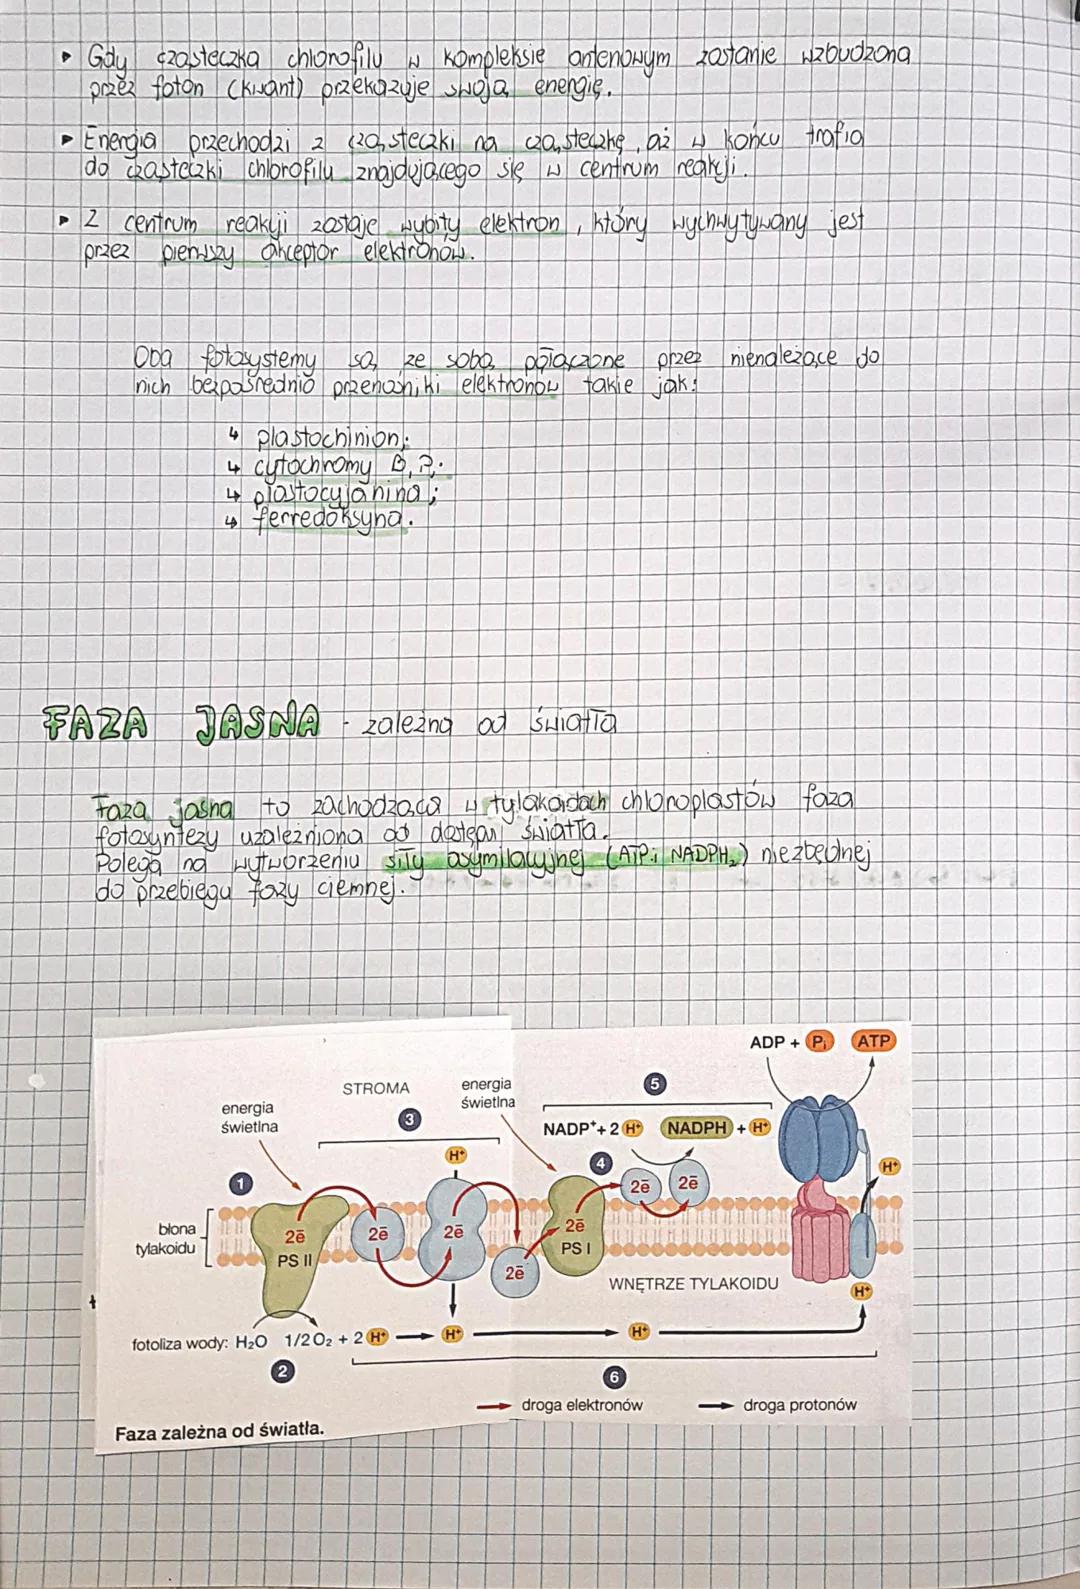 ▸ Gdy cząsteczka chlorofilu w kompleksie antenowym zostanie wzbudzona
przez foton (kwant) przekazuje swoją energię.
▸ Energia przechodzi z cząsteczki na cząsteczkę, aż w końcu trafia
do cząsteczki chlorofilu znajdującego się w centrum reakcji.
▸ Z centrum reakcji zostaje wybity elektron, który wychwytywany jest
przez pierwszy akceptor elektronów.
Oba fotosystemy są ze sobą połączone przez nienależące do
nich bezpośrednio przenośniki elektronów takie jak:
↳ plastochinion;
↳ cytochromy
↳ plastocyjanina;
↳ ferredoksyna.
FAZA JASNA - zależna od światła
Faza jasna to zachodząca w tylakoidach chloroplastów faza
fotosyntezy uzależniona od światła.
Polega na wytworzeniu siły asymilacyjnej (ATP i NADPH₂) niezbędnej
do przebiegu fazy ciemnej.
ADP + Pᵢ ATP
STROMA
energia
świetlna
5
energia
świetlna
3
NADP⁺+ 2 H⁺ NADPH + H⁺
H⁺
4
H⁺
1
2ē
2ē
błona
tylakoidu
2ē
PS II
2ē
2ē
2ē
PS I
2ē
WNĘTRZE TYLAKOIDU
H⁺
fotoliza wody: H₂O 1/2 O₂ + 2 H⁺
H⁺
H⁺
2
6
droga elektronów
droga protonów
Faza zależna od światła.